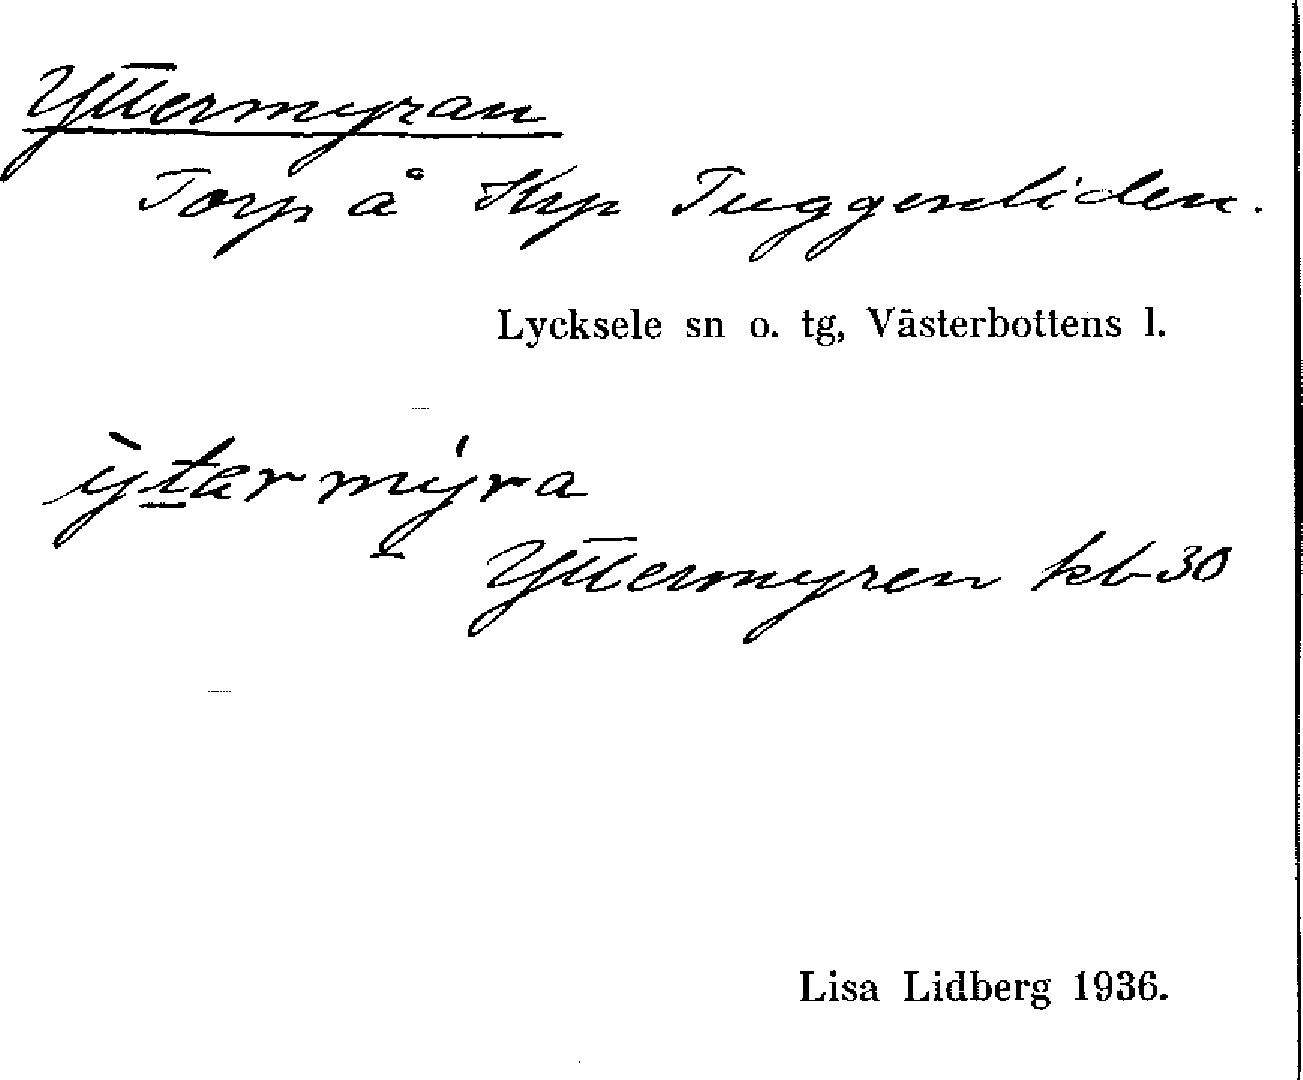 Yttermyran
Torp å Krp Tuggenliden.
Lycksele sn o. tg, Västerbottens l.
ỳtarmýra
Yttermyren kb 30
Lisa Lidberg 1936.